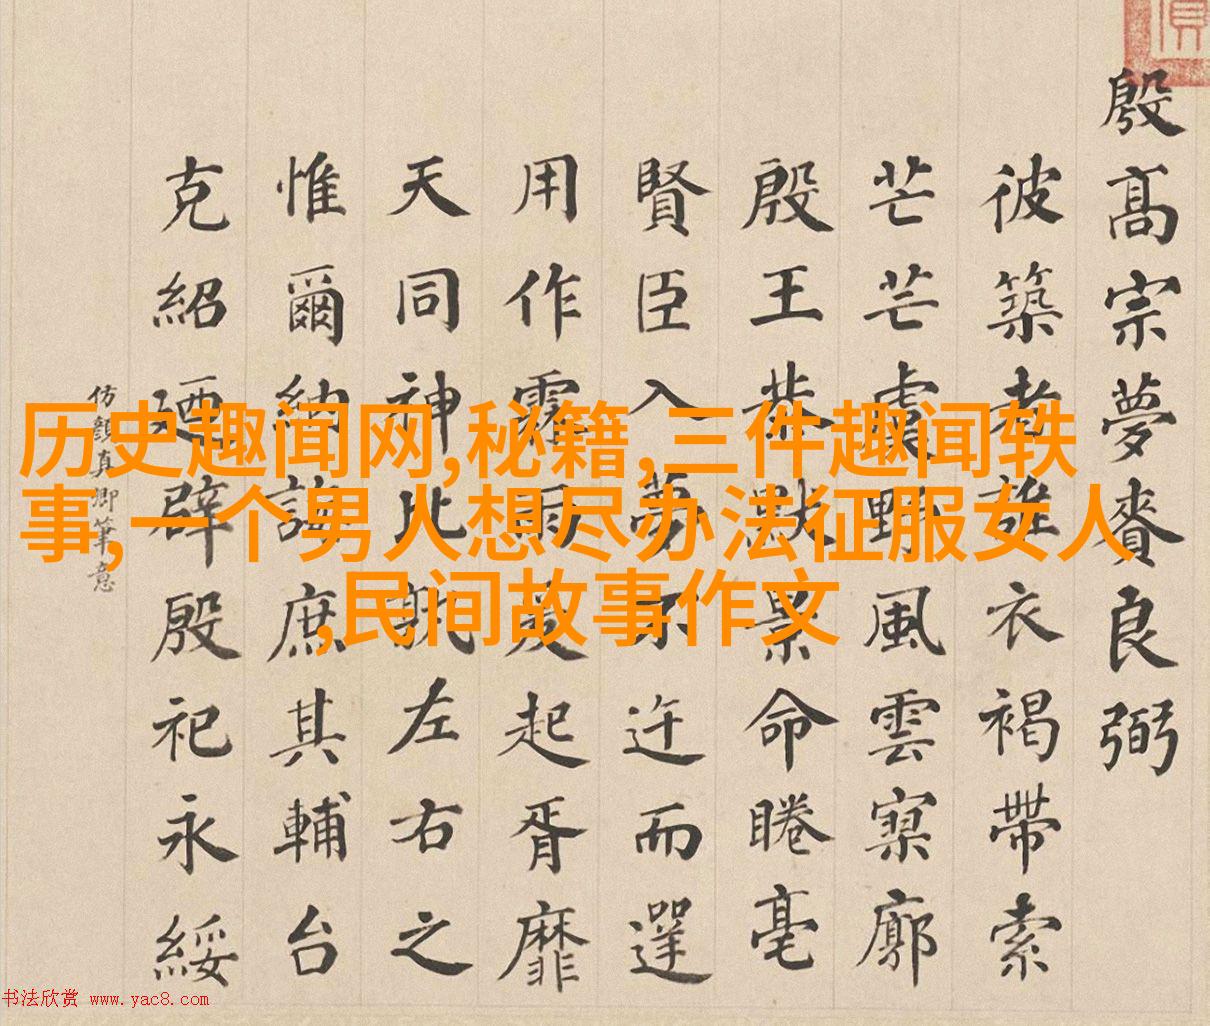 历史趣闻网,秘籍,三件趣闻轶
事,一个男人想尽办法征服女人
,民间故事作文
殷髙宗夢賚良弼
彼築者誰衣褐帶索
芒芒虞野風雲廓
殷王恭默景命睠亳
賢臣入夢不迕而
用作霖雨爰起胥靡
天同神比左右之
惟爾納誨庶其輔台
克紹廼辟殷祀永綏
仿顔真卿筆意
书法欣赏 www.yac8.com